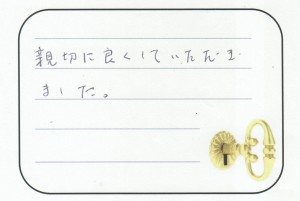 親切に良くしていただき
ました。